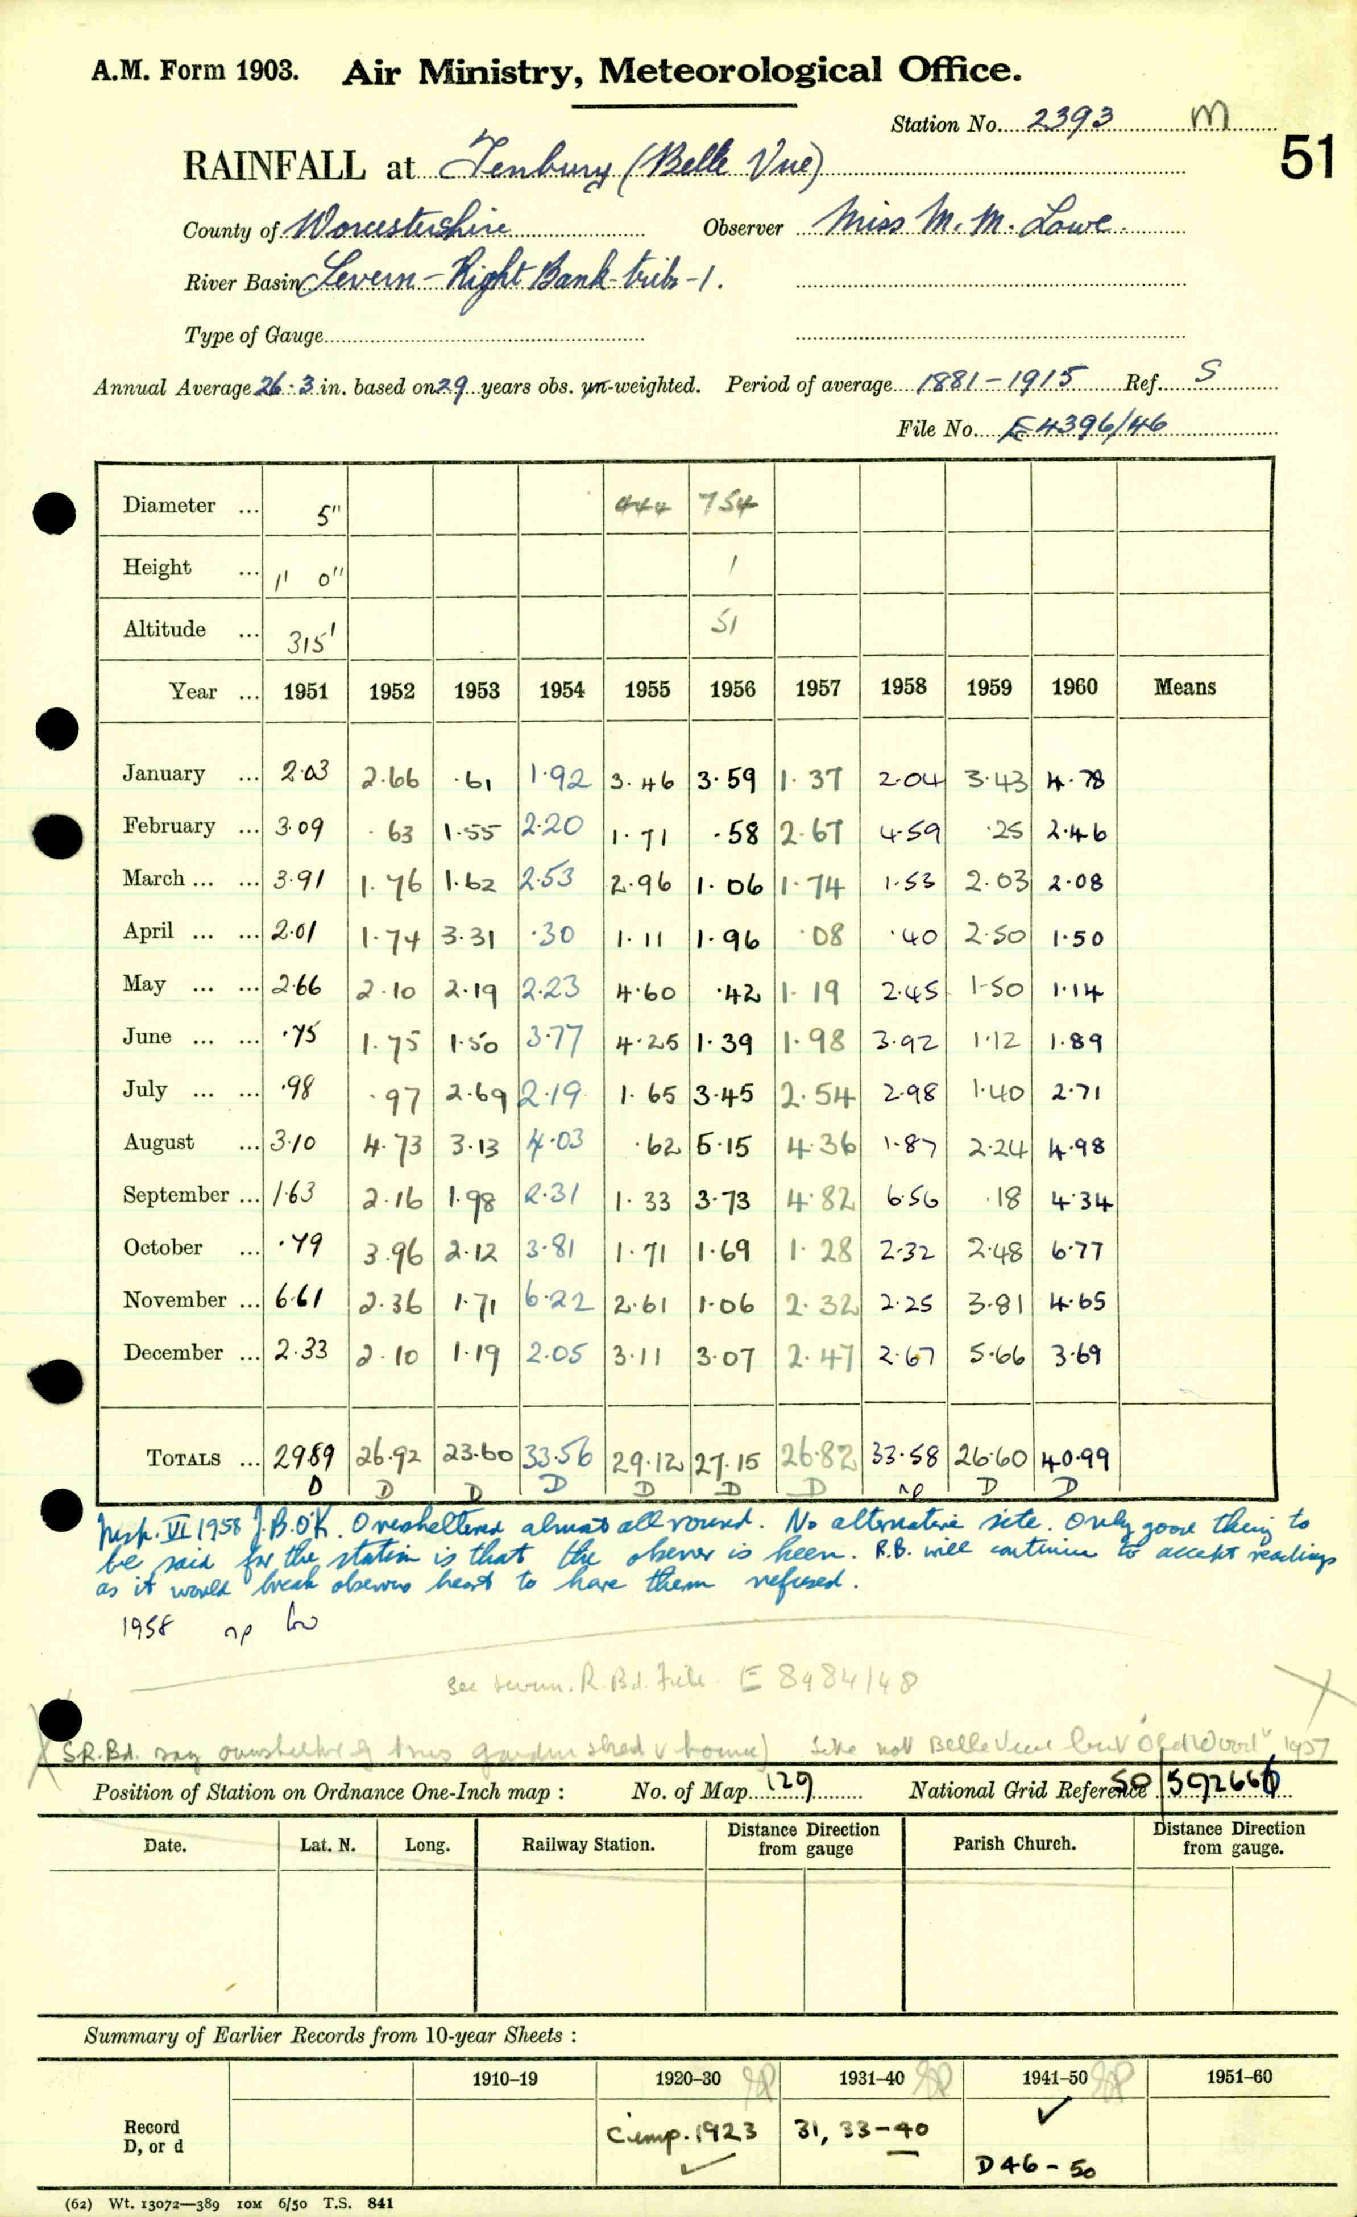 A.M. Form 1903. Air Ministry, Meteorological Office.
Station No. 2393 M
51
RAINFALL at Tenbury (Belle Vue)
County of Worcestershire Observer Miss M. M. Lowe.
River Basin Severn - Right Bank tribs - 1.
Type of Gauge
Annual Average 26.3 in. based on 29 years obs. un-weighted. Period of average 1881-1915 Ref. S
File No. E4396/46
Diameter ... 5" 444 754
Height ... 1' 0" 1
Altitude ... 315' 51
Year ... 1951 1952 1953 1954 1955 1956 1957 1958 1959 1960 Means
January ... 2.03 2.66 .61 1.92 3.46 3.59 1.37 2.04 3.43 4.78
February ... 3.09 .63 1.55 2.20 1.71 .58 2.67 4.59 .25 2.46
March ... ... 3.91 1.76 1.62 2.53 2.96 1.06 1.74 1.53 2.03 2.08
April ... ... 2.01 1.74 3.31 .30 1.11 1.96 .08 .40 2.50 1.50
May ... ... 2.66 2.10 2.19 2.23 4.60 .42 1.19 2.45 1.50 1.14
June ... ... .75 1.75 1.50 3.77 4.25 1.39 1.98 3.92 1.12 1.89
July ... ... .98 .97 2.69 2.19 1.65 3.45 2.54 2.98 1.40 2.71
August ... 3.10 4.73 3.13 4.03 .62 5.15 4.36 1.87 2.24 4.98
September ... 1.63 2.16 1.98 2.31 1.33 3.73 4.82 6.56 .18 4.34
October ... .79 3.96 2.12 3.81 1.71 1.69 1.28 2.32 2.48 6.77
November ... 6.61 2.36 1.71 6.22 2.61 1.06 2.32 2.25 3.81 4.65
December ... 2.33 2.10 1.19 2.05 3.11 3.07 2.47 2.67 5.66 3.69
TOTALS ... 29.89 26.92 23.60 33.56 29.12 27.15 26.82 33.58 26.60 40.99
D D D D D D D np D D
Insp. VI 1958 J.B.O'K. Oversheltered almost all round. No alternative site. Only good thing to
be said for the station is that the observer is keen. R.B. will continue to accept readings
as it would break observers heart to have them refused.
1958 np
See Severn. R. Bd. File. E 8984/48
S.R.Bd. say oversheltered trees garden shed & house) Site not Belle Vue but "Oldwood" 1957
Position of Station on Ordnance One-Inch map : No. of Map 129 National Grid Reference SO 592666
Date. Lat. N. Long. Railway Station. Distance Direction from gauge Parish Church. Distance Direction from gauge.
Summary of Earlier Records from 10-year Sheets :
1910-19 1920-30 1931-40 1941-50 1951-60
Record
D, or d
Comp. 1923 31, 33-40 ✓
✓ D 46-50
(62) Wt. 13072—389 10M 6/50 T.S. 841